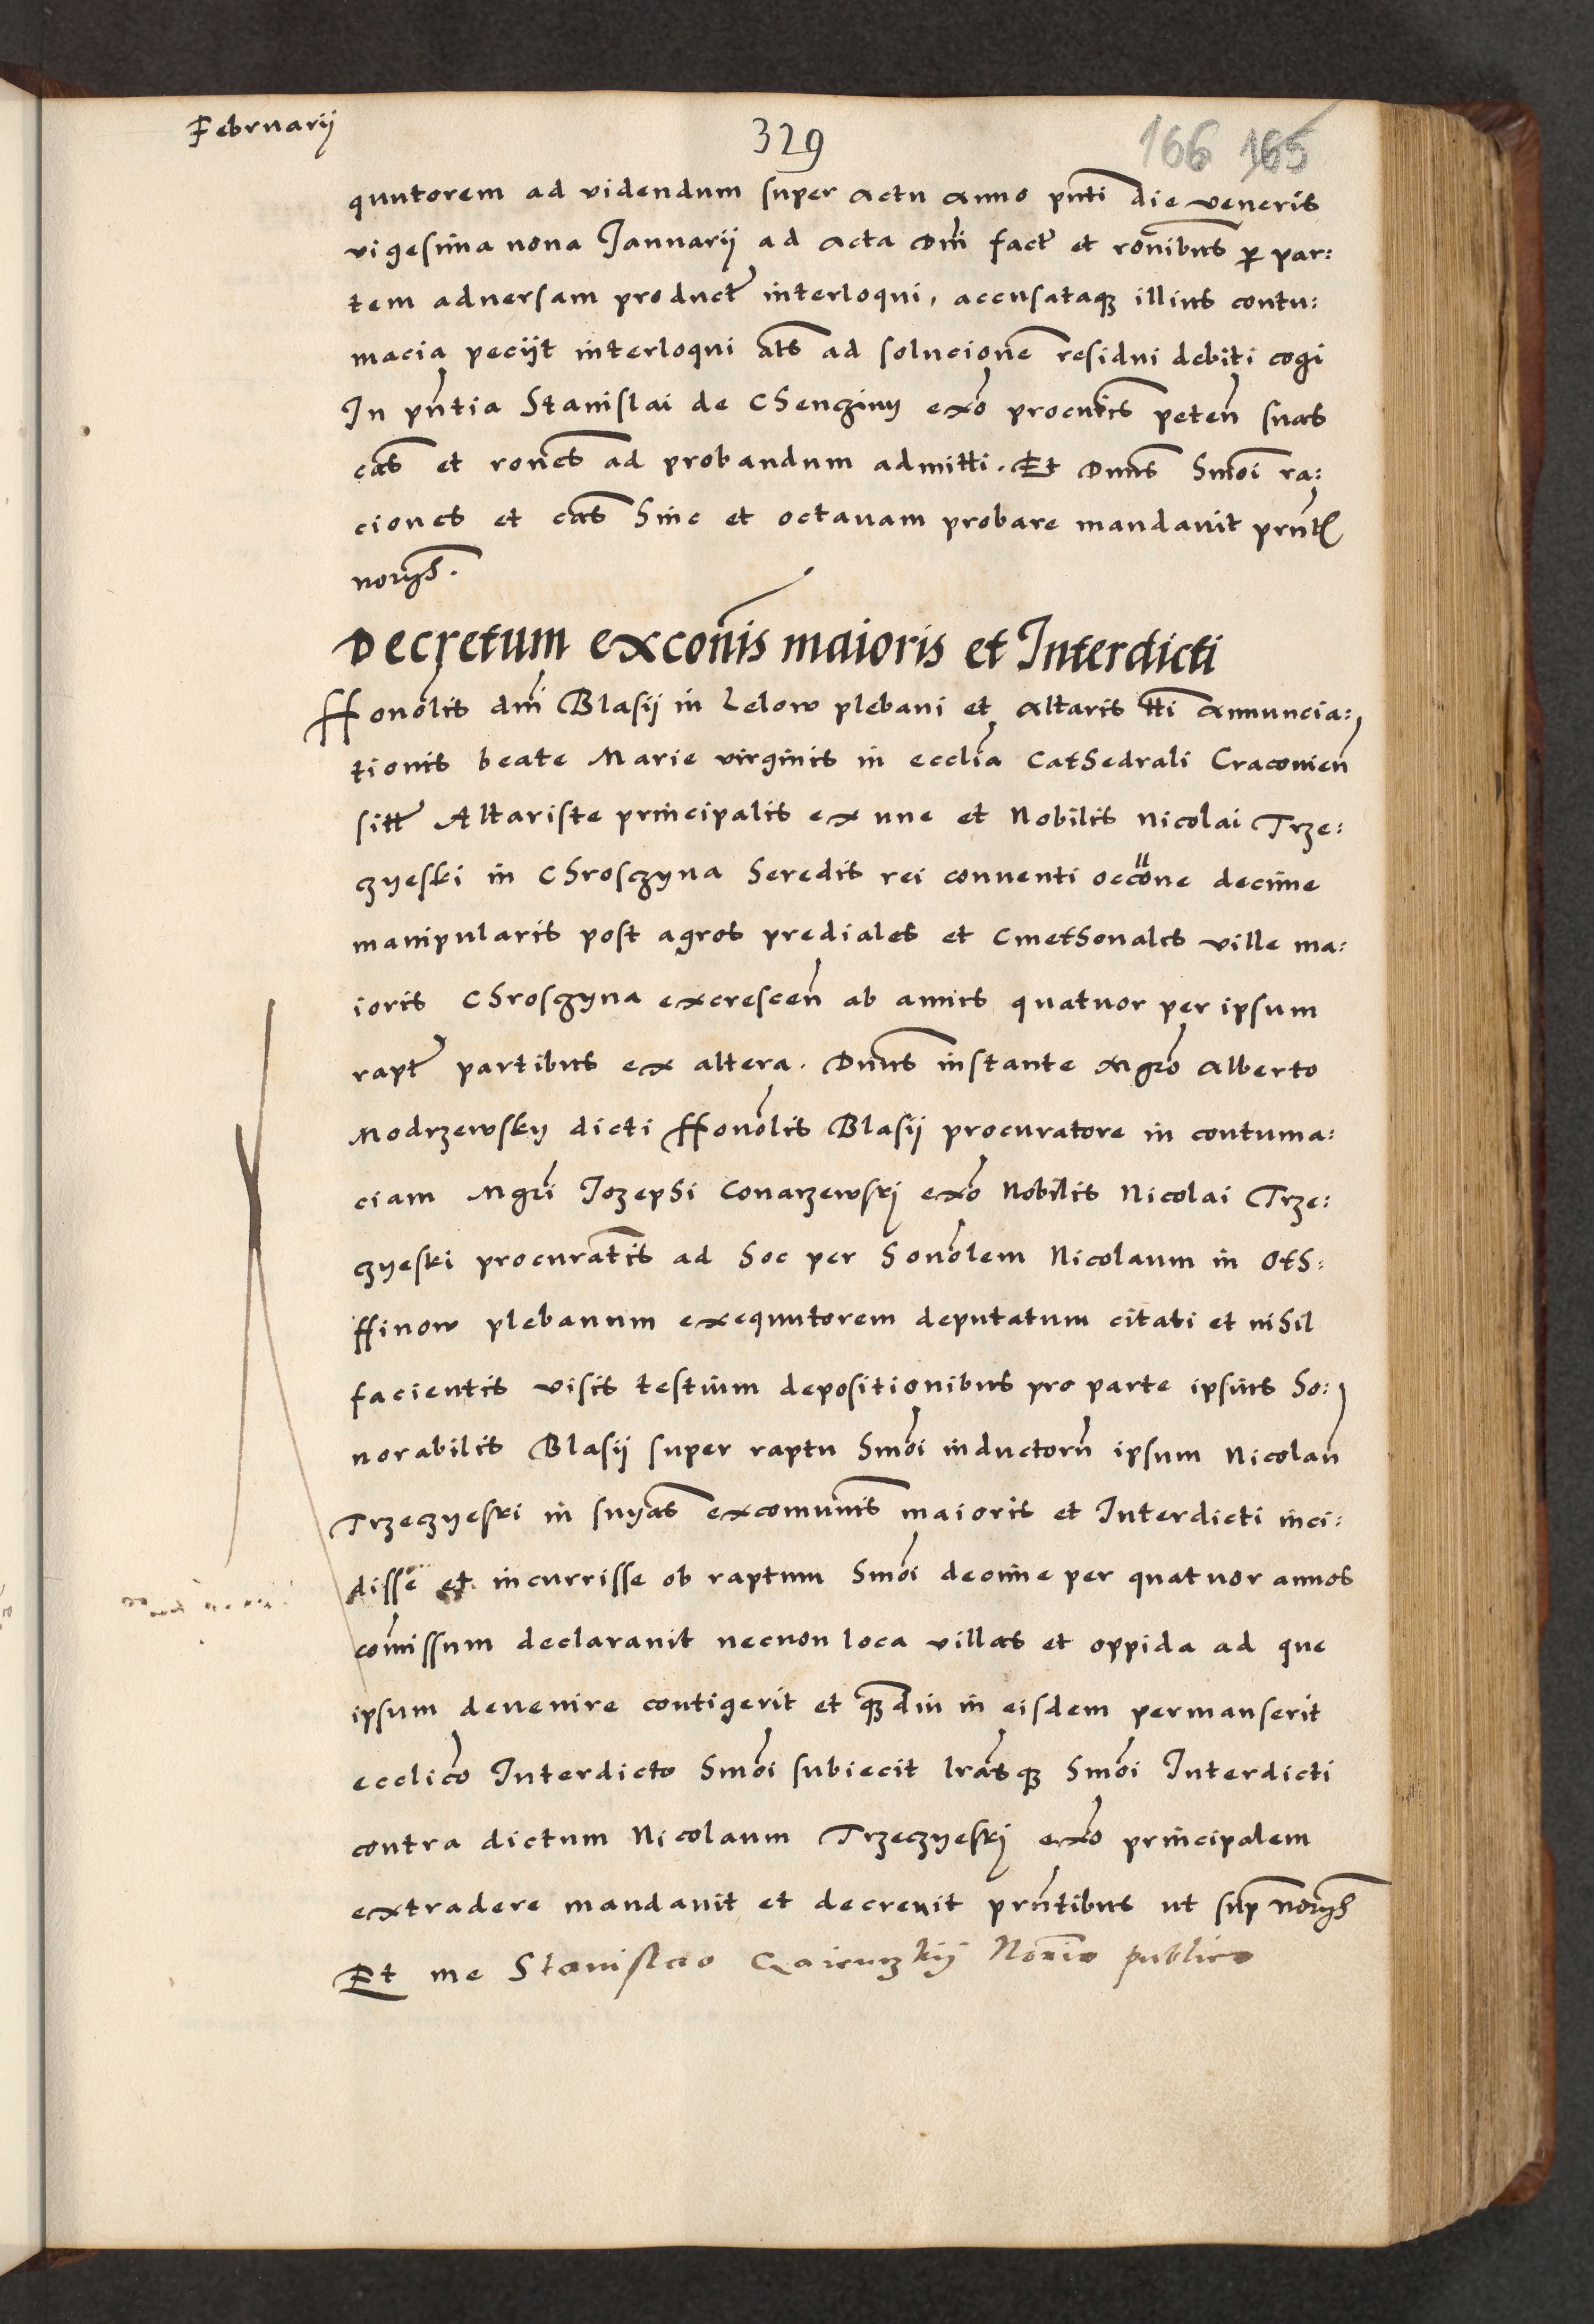 Februarij
329
166 165
quutorem ad videndum super actu anno pnti die veneris
vigesima nona Januarij ad acta Dni fact et ronibus per par:
tem adversam product interloqui, accusataque illius contu:
macia peciit interloqui als ad solucionem residui debiti cogi
In pntia Stanislai de Chencziny exo procuris peten suas
cas et rones ad probandum admitti. Et Dnus hmoi ra:
ciones et cas hinc et octavam probare mandavit prnt
norijs.
Decretum exconis maioris et Interdicti
Honolis dni Blasij in Lelow plebani et altaris tti Annuncia:
tionis beate Marie virginis in ecclia Cathedrali Cracovien
sitt Altariste principalis ex une et Nobilis Nicolai Trze:
czyeski in Chrosczyna heredis rei conventi occone decime
manipularis post agros prediales et Cmethonales ville ma:
ioris Chrosczyna excrescen ab annis quatuor per ipsum
rapt partibus ex altera. Dnus instante Mgro Alberto
Modrzewsky dicti Honolis Blasij procuratore in contuma:
ciam Mgri Jozephi Conarzewskj exo Nobilis Nicolai Trze:
czyeski procuratis ad hoc per honolem Nicolaum in Oth:
ffinow plebanum exequutorem deputatum citati et nihil
facientis visis testium depositionibus pro parte ipsius ho:
norabilis Blasij super raptu hmoi inductorn ipsum Nicolau
Trzeczyeski in snyas excomunis maioris et Interdicti inci:
disse et incurrisse ob raptum hmoi decime per quatuor annos
comissum declaravit necnon loca villas et oppida ad que
ipsum devenire contigerit et quamdiu in eisdem permanserit
ecclico Interdicto hmoi subiecit lrasque hmoi Interdicti
contra dictum Nicolaum Trzeczyeskj exo principalem
extradere mandavit et decrevit prntibus ut sup norijs
Et me Stanislao Notrio publico